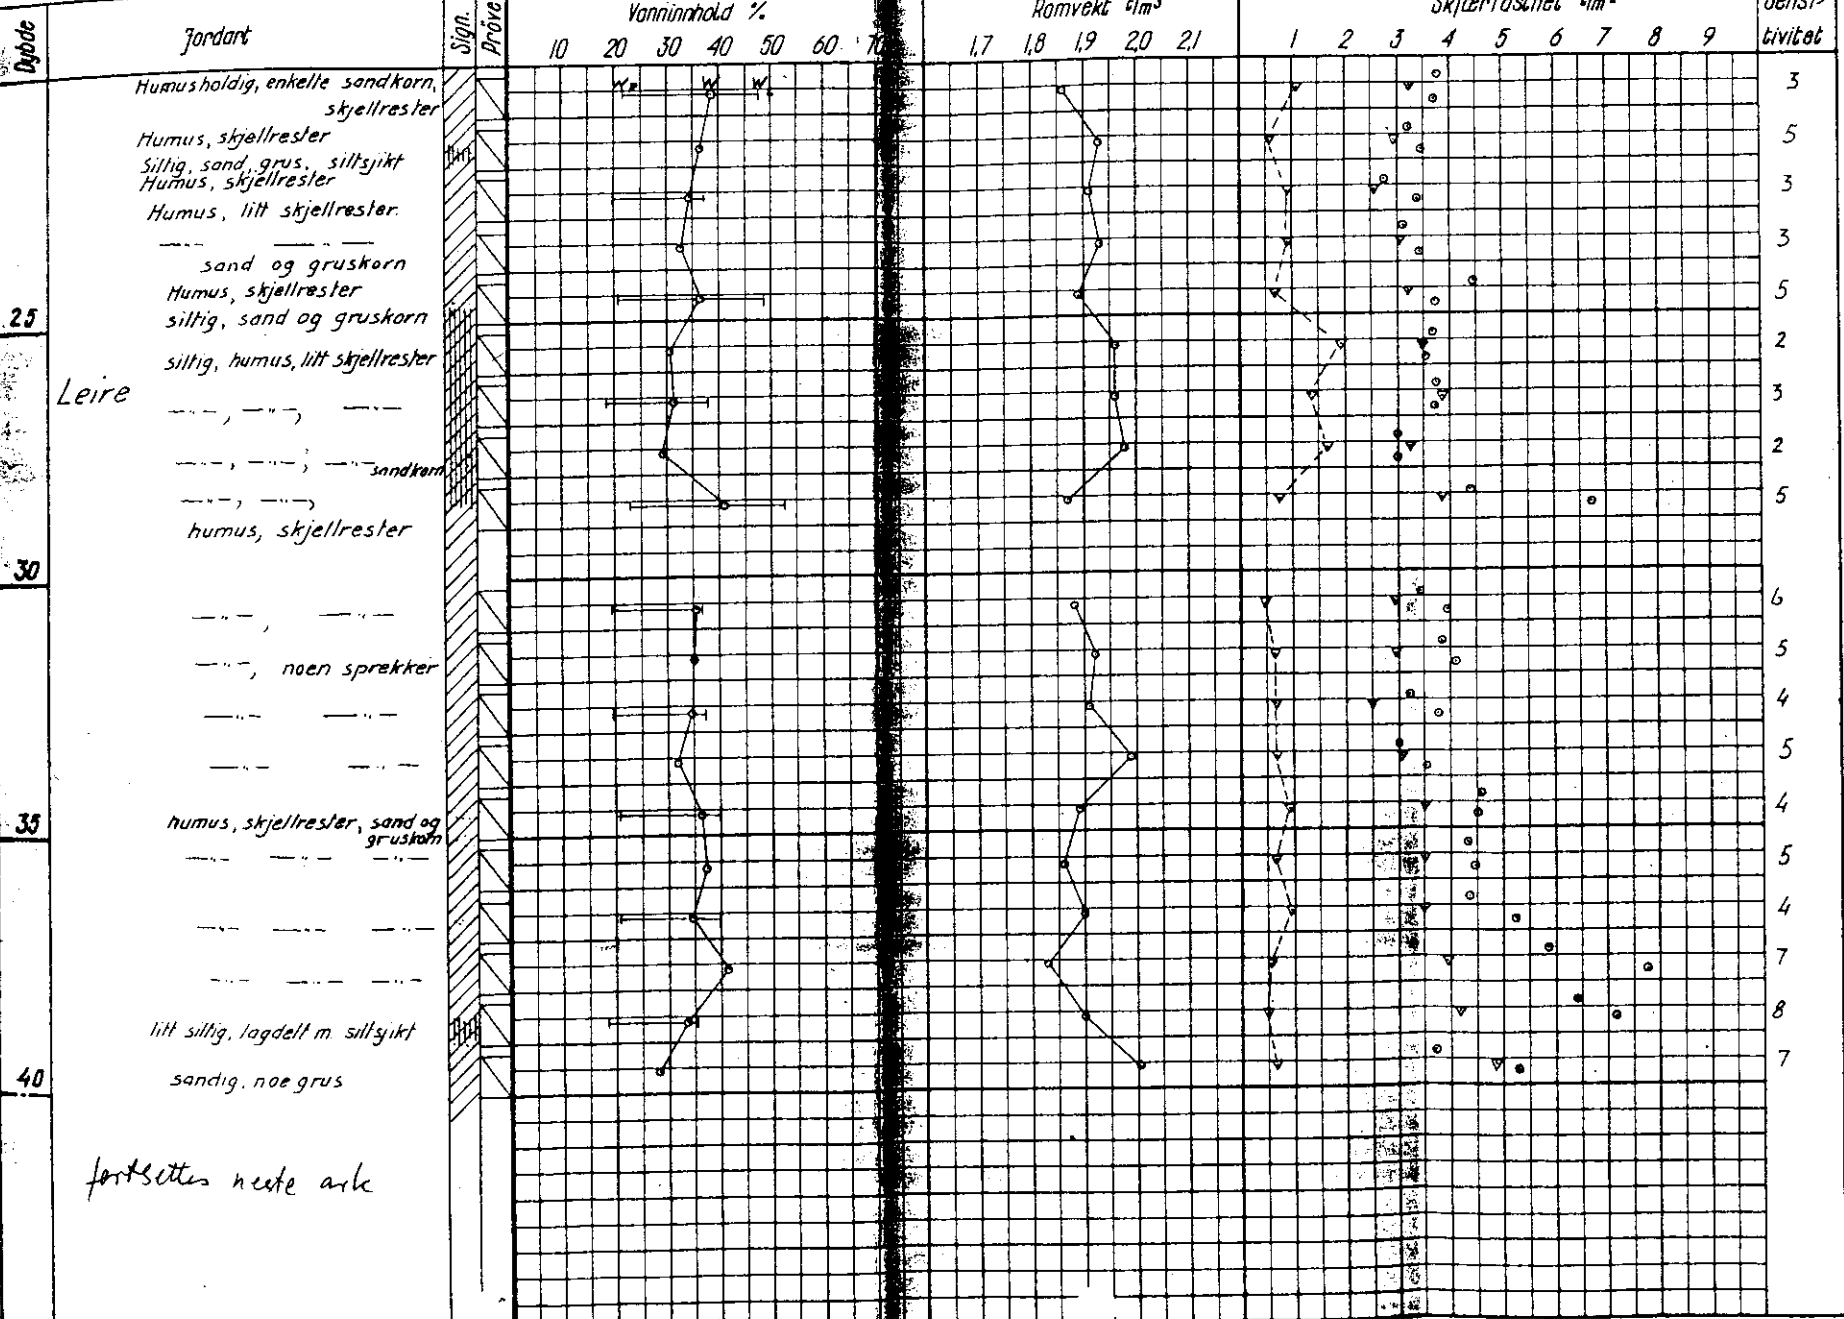 Dybde
Jordart
Sign.
Prøve
Vanninnhold %
10 20 30 40 50 60 70
Romvekt t/m³
1,7 1,8 1,9 2,0 2,1
Skjærfasthet t/m²
1 2 3 4 5 6 7 8 9
tivitet
Humusholdig, enkelte sandkorn,
skjellrester
W W
3
Humus, skjellrester
5
Siltig, sand, grus, siltsjikt
Humus, skjellrester
3
Humus, litt skjellrester.
—"— —"—
3
sand og gruskorn
Humus, skjellrester
5
25
siltig, sand og gruskorn
2
siltig, humus, litt skjellrester
Leire
—"—, —"—, —"—
3
—"—, —"—, —"— sandkorn
2
—"—, —"—,
5
humus, skjellrester
30
—"—, —"—
6
—"—, noen sprekker
5
—"— —"—
4
—"— —"—
5
35
humus, skjellrester, sand og
gruskorn
4
—"— —"— —"—
5
—"— —"— —"—
4
—"— —"— —"—
7
litt siltig, lagdelt m. siltsjikt
8
40
sandig, noe grus
7
fortsettes neste ark